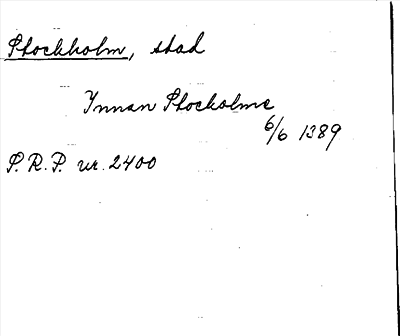 Stockholm, stad
Innan Stocholme
6/6 1389
S. R. P. nr. 2400